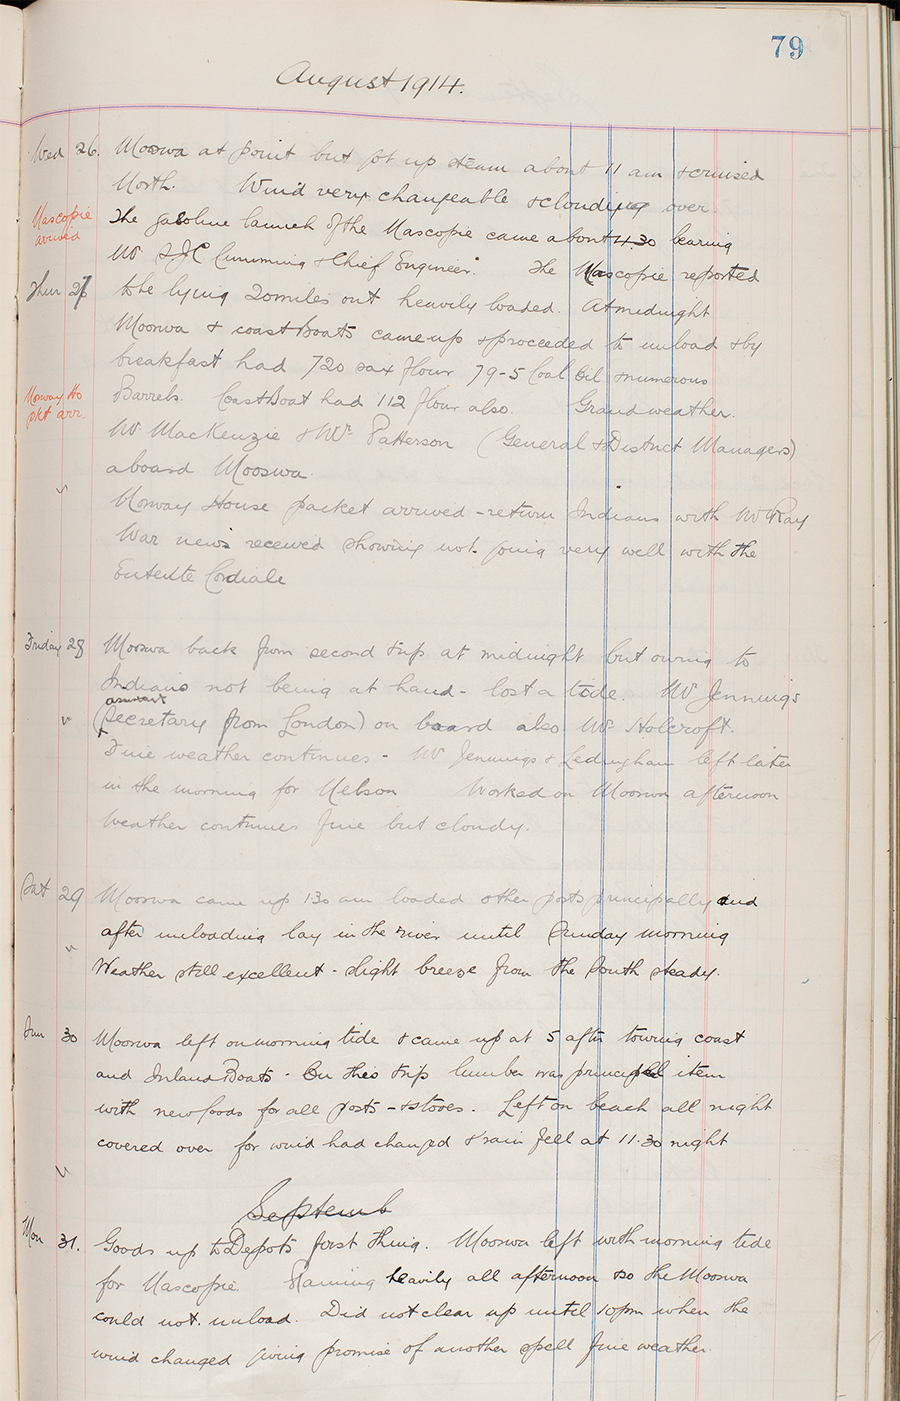 79
August 1914.
Wed 26. Mooswa at point but got up steam about 11 am & cruised
North. Wind very changeable & clouding over.
Nascopie arrived
The gasoline launch of the Nascopie came about 4.30 bearing
Mr & JC Cumming & Chief Engineer. The Nascopie reported
Thur 27 to be lying 20 miles out heavily loaded. At midnight
Mooswa & coast Boats came up & proceeded to unload & by
breakfast had 720 sax flour 79-5 Coal Oil & numerous
Norway Ho pkt arr.
Barrels. Coast Boat had 112 flour also. Grand weather.
Mr MacKenzie & Mr Patterson (General & District Managers)
aboard Mooswa.
Norway House packet arrived - return Indians with Mr Ray
War news received showing not going very well with the
Entente Cordiale
Friday 28 Mooswa back from second trip at midnight but owing to
Indians not being at hand - lost a tide. Mr Jennings
assistant
(Secretary from London) on board also Mr Holcroft.
Fine weather continues - Mr Jennings & Ledingham left later
in the morning for Nelson Worked on Mooswa afternoon
Weather continues fine but cloudy.
Sat 29 Mooswa came up 130 am loaded other posts principally and
after unloading lay in the river until Sunday morning
Weather still excellent - slight breeze from the South steady.
Sun 30 Mooswa left on morning tide & came up at 5 after towing coast
and Inland Boats - On this trip lumber was principal item
with new goods for all posts - & stoves. Left on beach all night
covered over for wind had changed & rain fell at 11.30 night
Septemb
Mon 31. Goods up to Depots first thing. Mooswa left with morning tide
for Nascopie. Raining heavily all afternoon so the Mooswa
could not unload. Did not clear up until 10pm when the
wind changed giving promise of another spell fine weather.